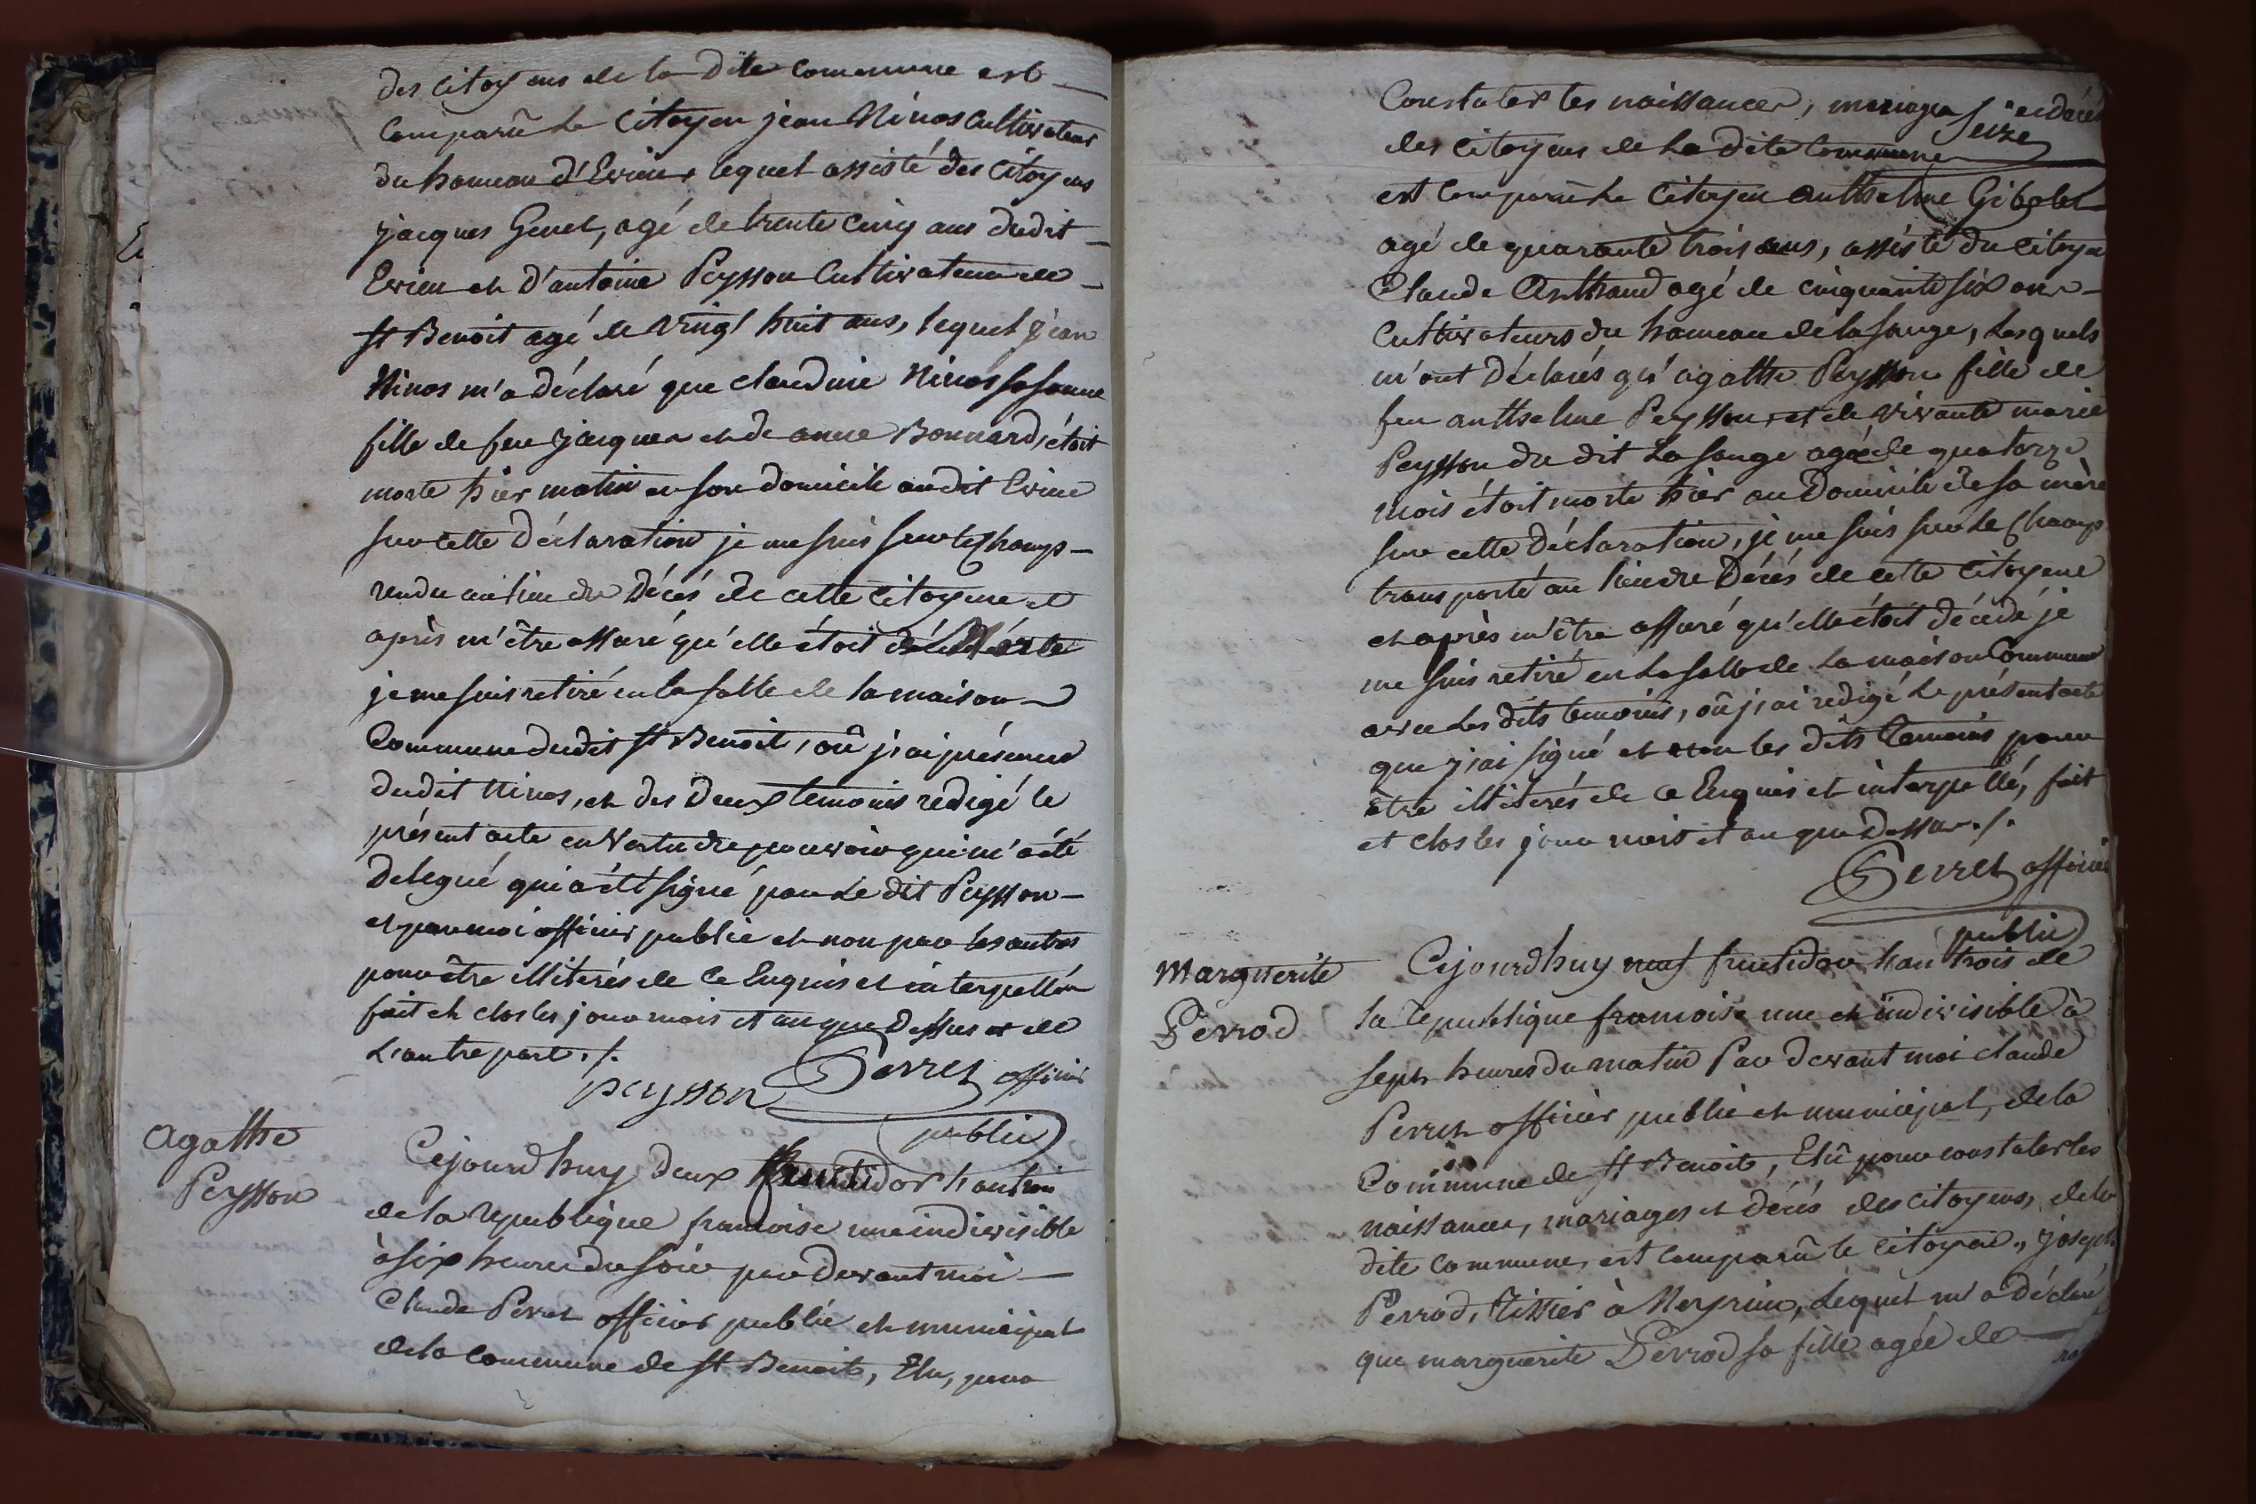 des citoyens de la Dite commune est
comparû le Citoyen jean Ninos Cultivateur
du hameau d'Evieu, lequel assisté des Citoyens
jacques Genet, agé de trente cinq ans dudit
Evieu et d'antoine Peysson Cultivateur de
st Benoit agé de vingt huit ans, lequel jean
Ninos m'a déclaré que claudine Ninos sa
fille de feu jacques et de anne Bonnard, étoit
morte hier matin en son domicile audit Evieu
sur cette Déclaration je me suis sur le champs
rendu au lieu du Décés de cette Citoyene et
après m'être assuré qu'elle étoit
je me suis retiré en la salle de la maison
Commune dudit st Benoit, où j'ai présence
dudit Ninos, et des Deux temoins redigé le
présent acte en Vertu du pouvoir qui m'a été
delegué qui a été signé par le dit Peysson
et par moi officier public et non par les autres
pour être illiterés de ce Enquis et interpellés
fait et clos les jour mois et an que Dessus et de
L'autre part ./.
peysson Perret officier
public
Agathe
Peysson
Cejourd'huy deux fructidor l'an trois
de la republique francoise une indivisible
à six heures du soir par devant moi
Claude Perret officier public et municipal
de la commune de st Benoit, Elu, pour
Constater les naissances, mariages et décés
Seize
des citoyens de la dite Commune
est comparû le Citoyen anthelme Gibolet
agé de quarante trois ans, assisté du citoyen
Claude Anthaud agé de cinquante six ans
Cultivateurs du hameau de la sauge, Lesquels
m'ont Déclarés qu'agathe Peysson fille de
feu anthelme Peysson et de vivante marie
Peysson du dit La sauge agée de quatorze
mois étoit morte hier au Domicile de sa mère
sur cette déclaration, je me suis sur le champs
transporté au lieu du Décés de cette citoyene
et après m'être assuré qu'elle étoit décédé je
me suis retiré en La salle de La maison Commune
avec les dits temoins, où j'ai redigé le présent acte
que j'ai signé et non les dits temoins pour
être illiterés de ce Enquis et interpellé, fait
et clos les jour mois et an que Dessus ./.
Perret officier
public
Marguerite
Perrod
Cejourd'huy neuf fructidor l'an trois de
la republique francoise une et indivisible à
sept heures du matin Par devant moi claude
Perret officier public et municipal, de la
Commune de st Benoit, Elû pour constater les
naissances, mariages et décés des citoyens, de la
dite commune, est comparû le citoyen, joseph
Perrod, Tissier à Neyrieu, Lequel m'a déclaré
que marguerite Perrod sa fille agée de